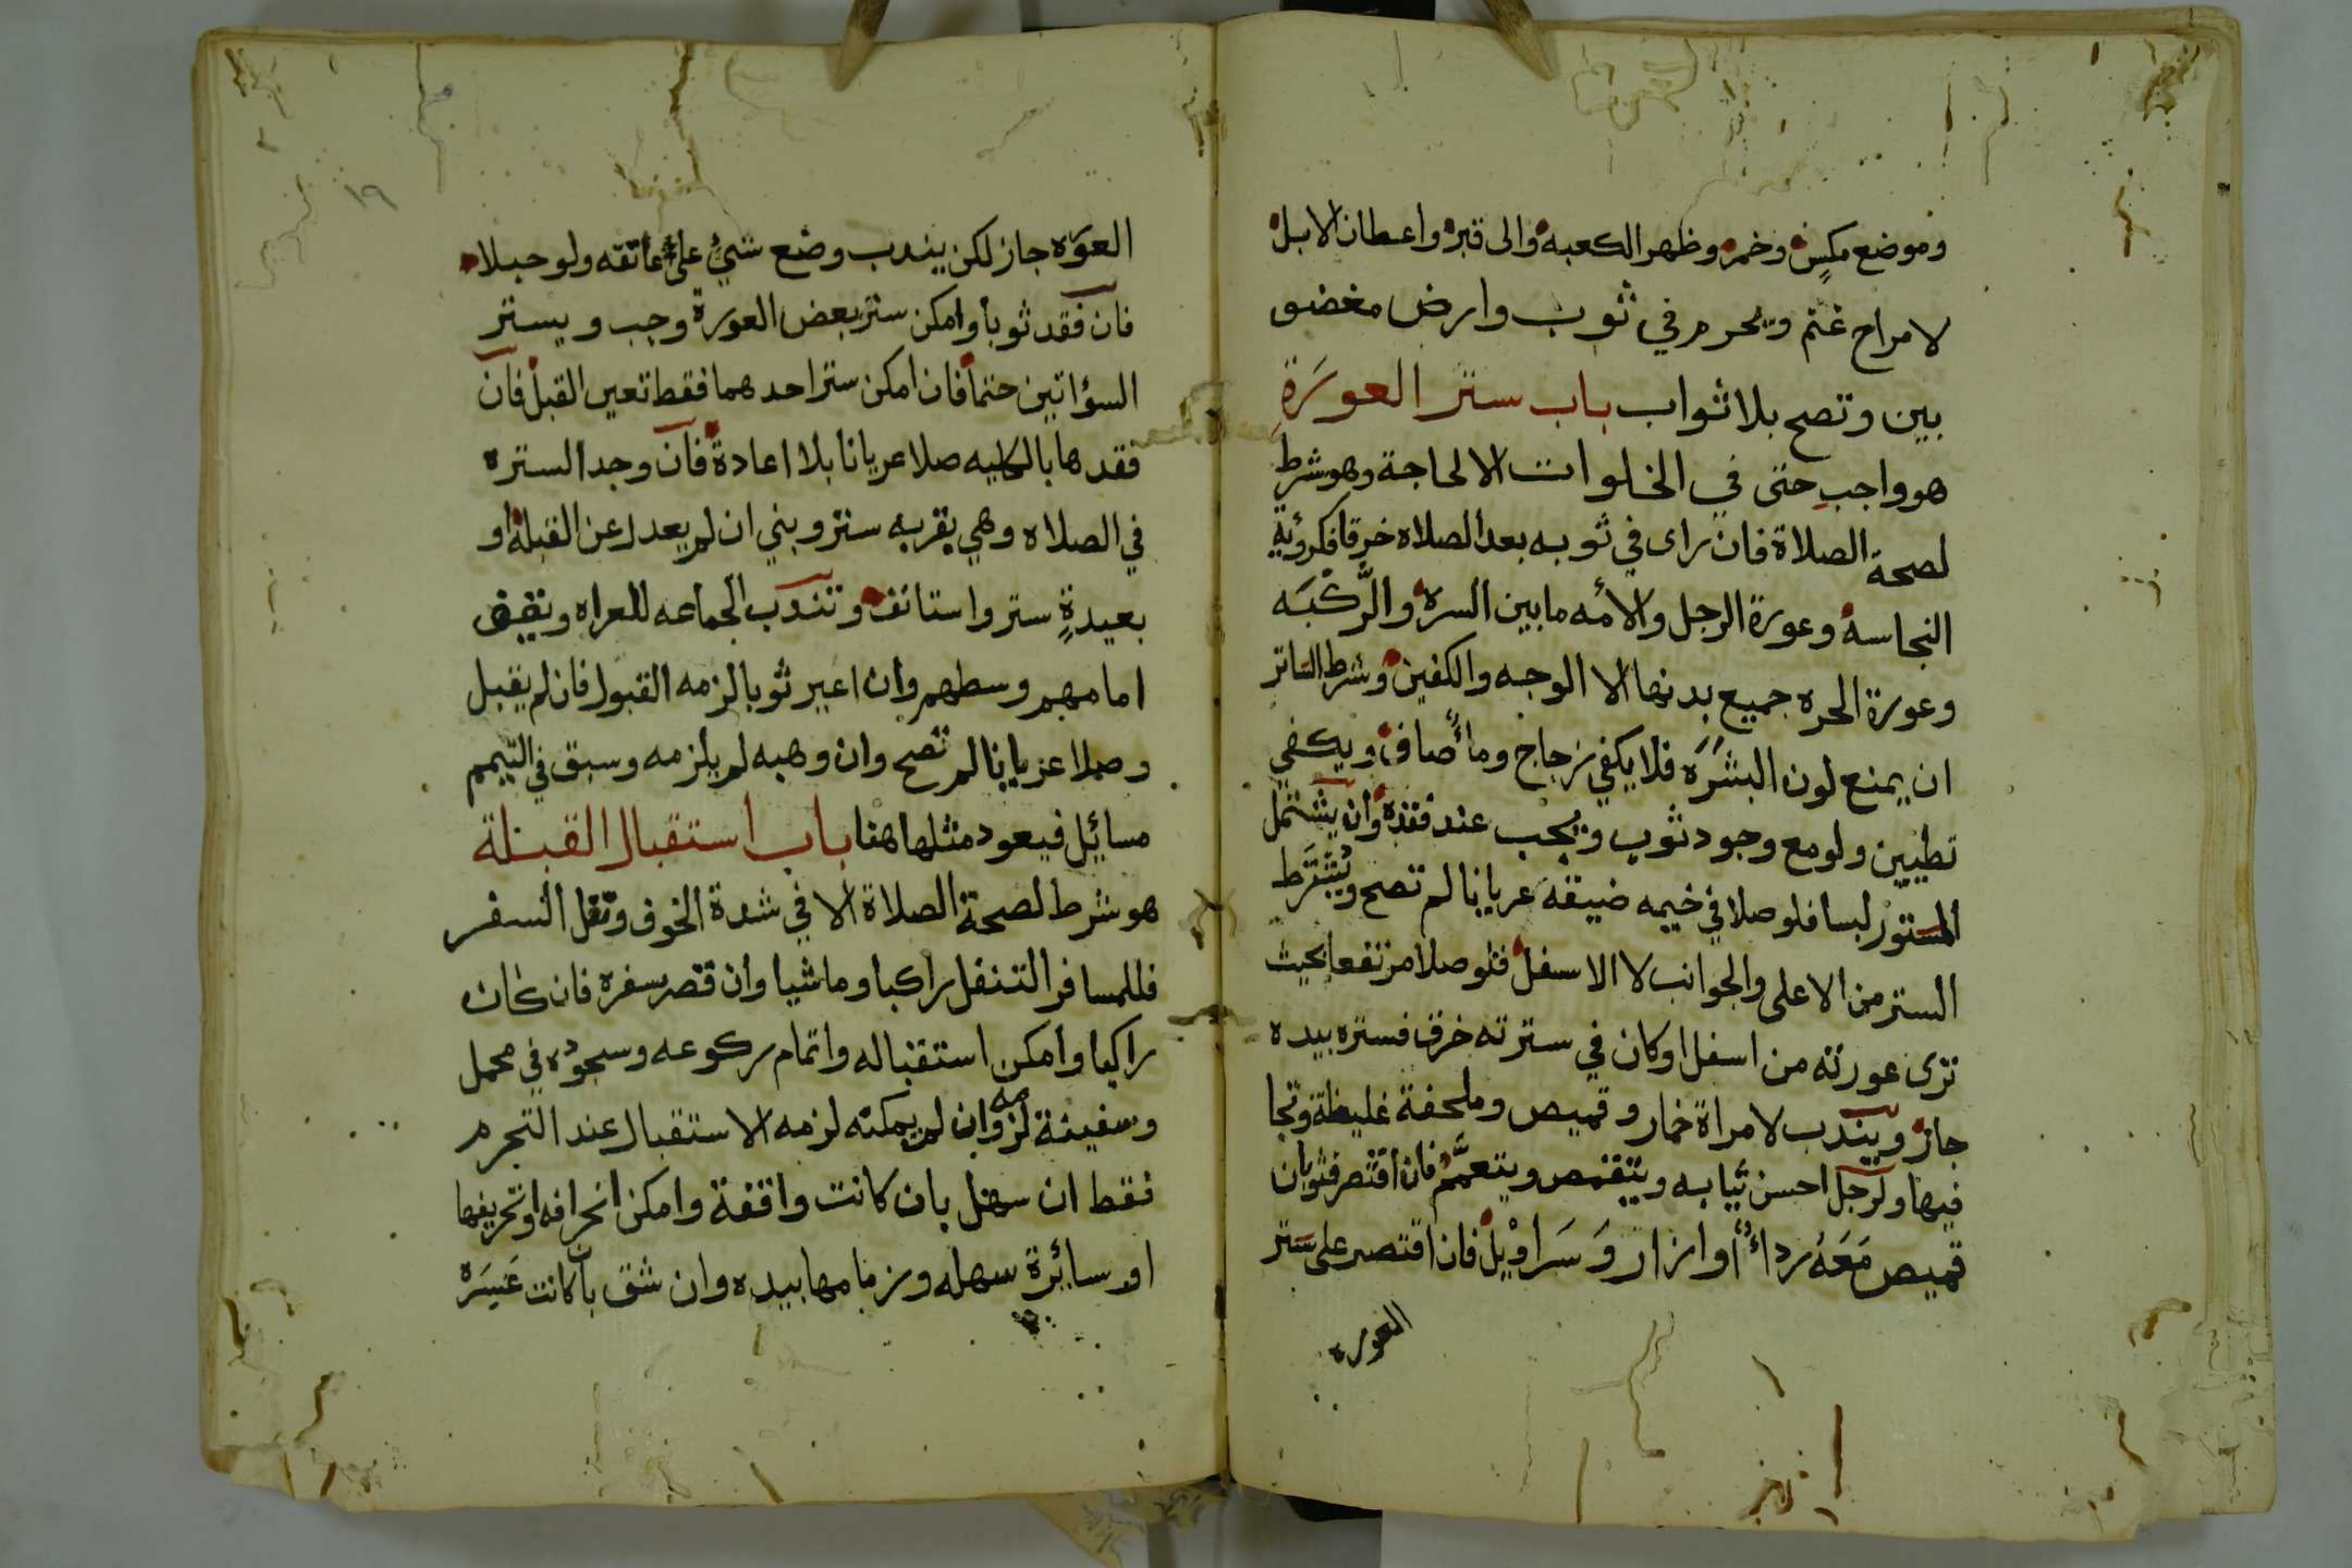 وموضع مكس وخمر وظهر الكعبه والى قبر واعطان الابل
لا مراح غنم ويحرم في ثوب وارض مغضو
بين وتصح بلا ثواب باب ستر العورَةِ
هو واجب حتى في الخلوات الا لحاجة وهو شرط
لصحة الصلاة فان راى في ثوبه بعد الصلاه خرقا فكرؤية
النجاسه وعورة الرجل والامه ما بين السره والرُّكْبَه
وعورة الحره جميع بدنها الا الوجه والكفين وشرط الساتر
ان يمنع لون البشَرَه فلا يكفي زجاج وماءٌ صاف ويكفي
تطيين ولو مع وجود ثوب ويجب عند فقده وان يشتمل
المستور لبسا فلو صلا في خيمه ضيقه عريانا لم تصح ويُشْتَرَط
الستر من الاعلى والجوانب لا الاسفل فلو صلا مرتفعا بحيث
ترى عورته من اسفل او كان في سترته خرق فستره بيده
جاز ويندب لامراة خمار وقميص وملحفة غليظة وتجا
فيها ولرجل احسن ثيابه ويتقمص ويتعمَّم فان اقتصر فثوبان
قميص مَعَهُ رداءٌ او ازار وَسَراوْيل فان اقتصر على ستر
العوره
١٩
العوره جاز لكن يندب وضع شيٍ على عاتقه ولو حبلا
فان فقد ثوبا وامكن ستر بعض العورة وجب ويستر
السؤاتين حتما فان امكن ستر احدهما فقط تعين القبل فان
فقدها بالكليه صلا عريانا بلا اعادة فان وجد الستره
في الصلاه وهي بقربه ستر وبني ان لم يعدل عن القبلة او
بعيدةٍ ستر واستانف وتندب الجماعه للعراه ويقف
امامهم وسطهم وان اعير ثوبا لزمه القبول فان لم يقبل
وصلا عريانا لم تصح وان وهبه لم يلزمه وسبق في التيمم
مسائيل فيعود مثلها هنا باب استقبال القبلة
هو شرط لصحة الصلاة الا في شدة الخوف ونفل السفر
فللمسافر التنفل راكبا وماشيا وان قصر سفره فان كان
راكبا وامكن استقباله واتمام ركوعه وسجوده في محمل
وسفينة لزمه وان لم يمكنه لزمه الاستقبال عند التحرم
فقط ان سهل بان كانت واقفة وامكن انحرافه او تحريفها
او سائرة سهله وزمامها بيده وان شق بان كانت عَسِرَه